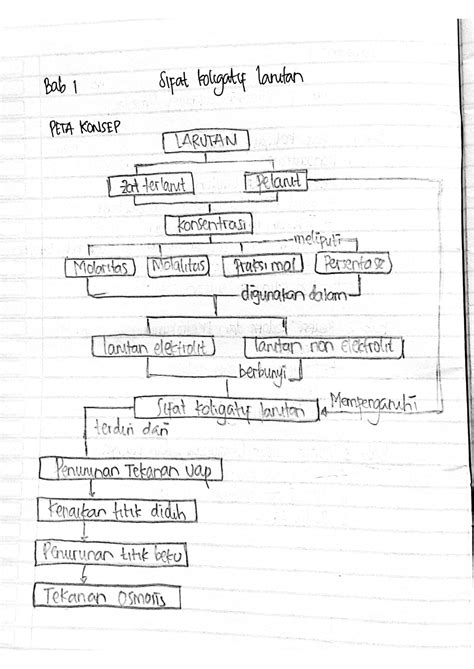 Bab 1 Sifat koligatif larutan
PETA KONSEP
LARUTAN
zat terlarut pelarut
Konsentrasi
meliputi
Molaritas Molalitas fraksi mol Persentase
digunakan dalam
larutan elektrolit larutan non elektrolit
berbunyi
Sifat koligatif larutan Mempengaruhi
terdiri dari
Penurunan Tekanan Uap
Kenaikan titik didih
Penurunan titik beku
Tekanan Osmosis